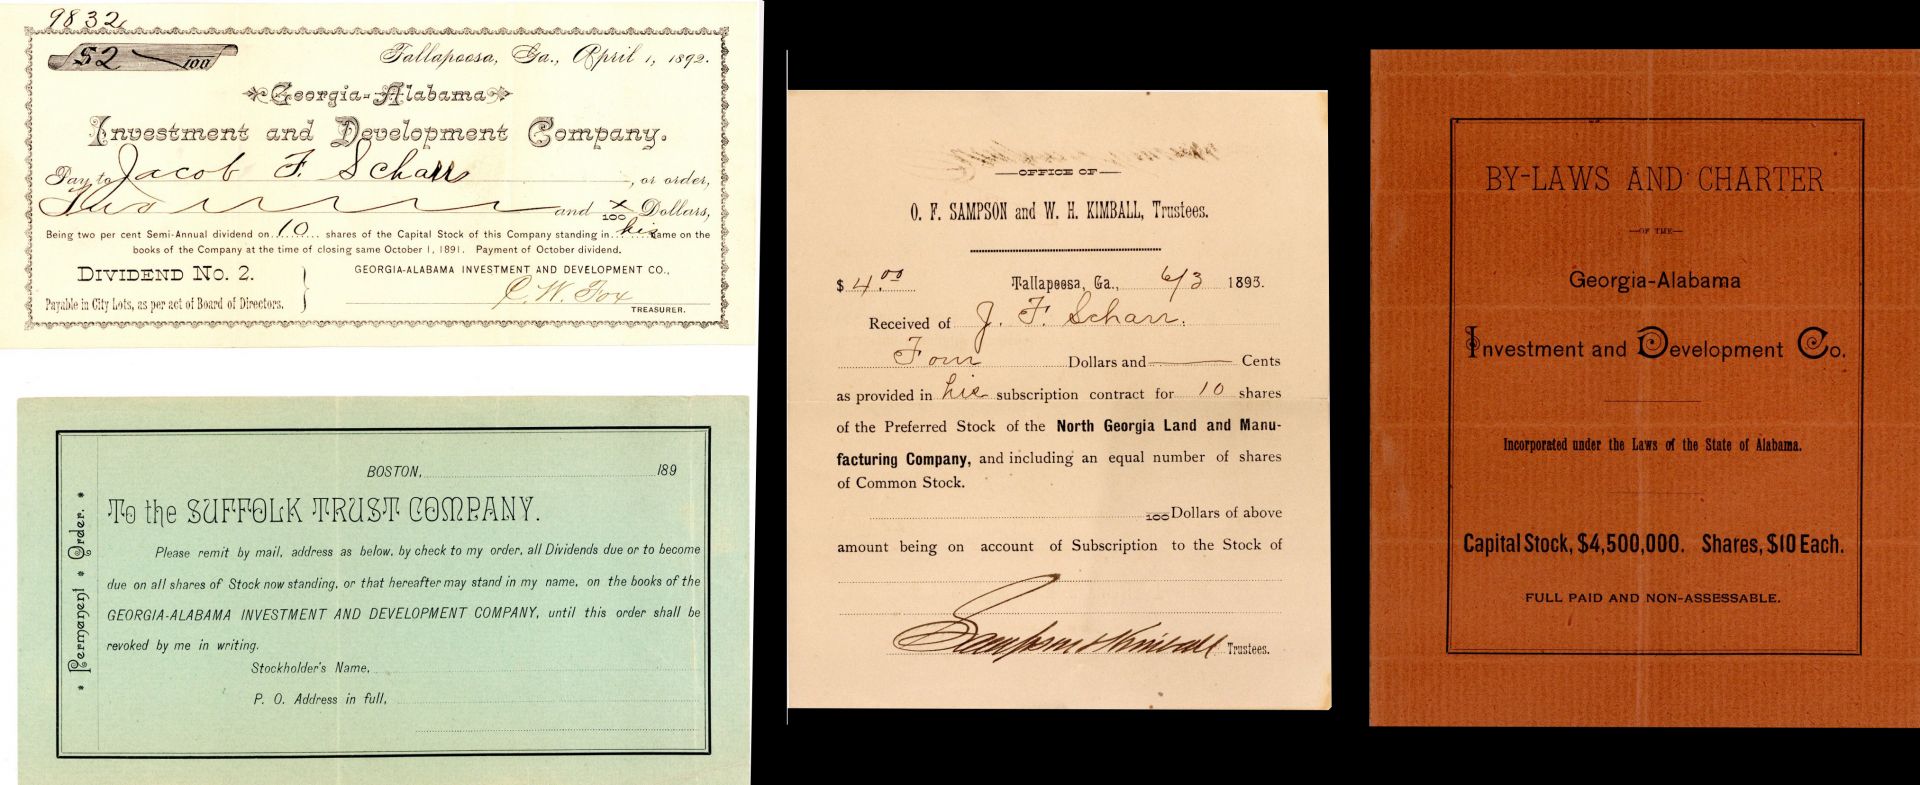 9832
$2 00/100
Tallapoosa, Ga., April 1, 1892.
Georgia-Alabama
Investment and Development Company.
Pay to Jacob F. Scharr, or order,
Two and x/100 Dollars,
Being two per cent Semi-Annual dividend on 10 shares of the Capital Stock of this Company standing in his name on the
books of the Company at the time of closing same October 1, 1891. Payment of October dividend.
DIVIDEND No. 2.
Payable in City Lots, as per act of Board of Directors.
GEORGIA-ALABAMA INVESTMENT AND DEVELOPMENT CO.,
C. W. Fox
TREASURER.
Permanent Order.
BOSTON, 189
To the SUFFOLK TRUST COMPANY.
Please remit by mail, address as below, by check to my order, all Dividends due or to become
due on all shares of Stock now standing, or that hereafter may stand in my name, on the books of the
GEORGIA-ALABAMA INVESTMENT AND DEVELOPMENT COMPANY, until this order shall be
revoked by me in writing.
Stockholder's Name,
P. O. Address in full,
OFFICE OF
O. F. SAMPSON and W. H. KIMBALL, Trustees.
$ 4.00 Tallapoosa, Ga., 6/3 1893.
Received of J. F. Scharr.
Four Dollars and Cents
as provided in his subscription contract for 10 shares
of the Preferred Stock of the North Georgia Land and Manu-
facturing Company, and including an equal number of shares
of Common Stock.
100 Dollars of above
amount being on account of Subscription to the Stock of
Sampson & Kimball Trustees.
BY-LAWS AND CHARTER
OF THE
Georgia-Alabama
Investment and Development Co.
Incorporated under the Laws of the State of Alabama.
Capital Stock, $4,500,000. Shares, $10 Each.
FULL PAID AND NON-ASSESSABLE.